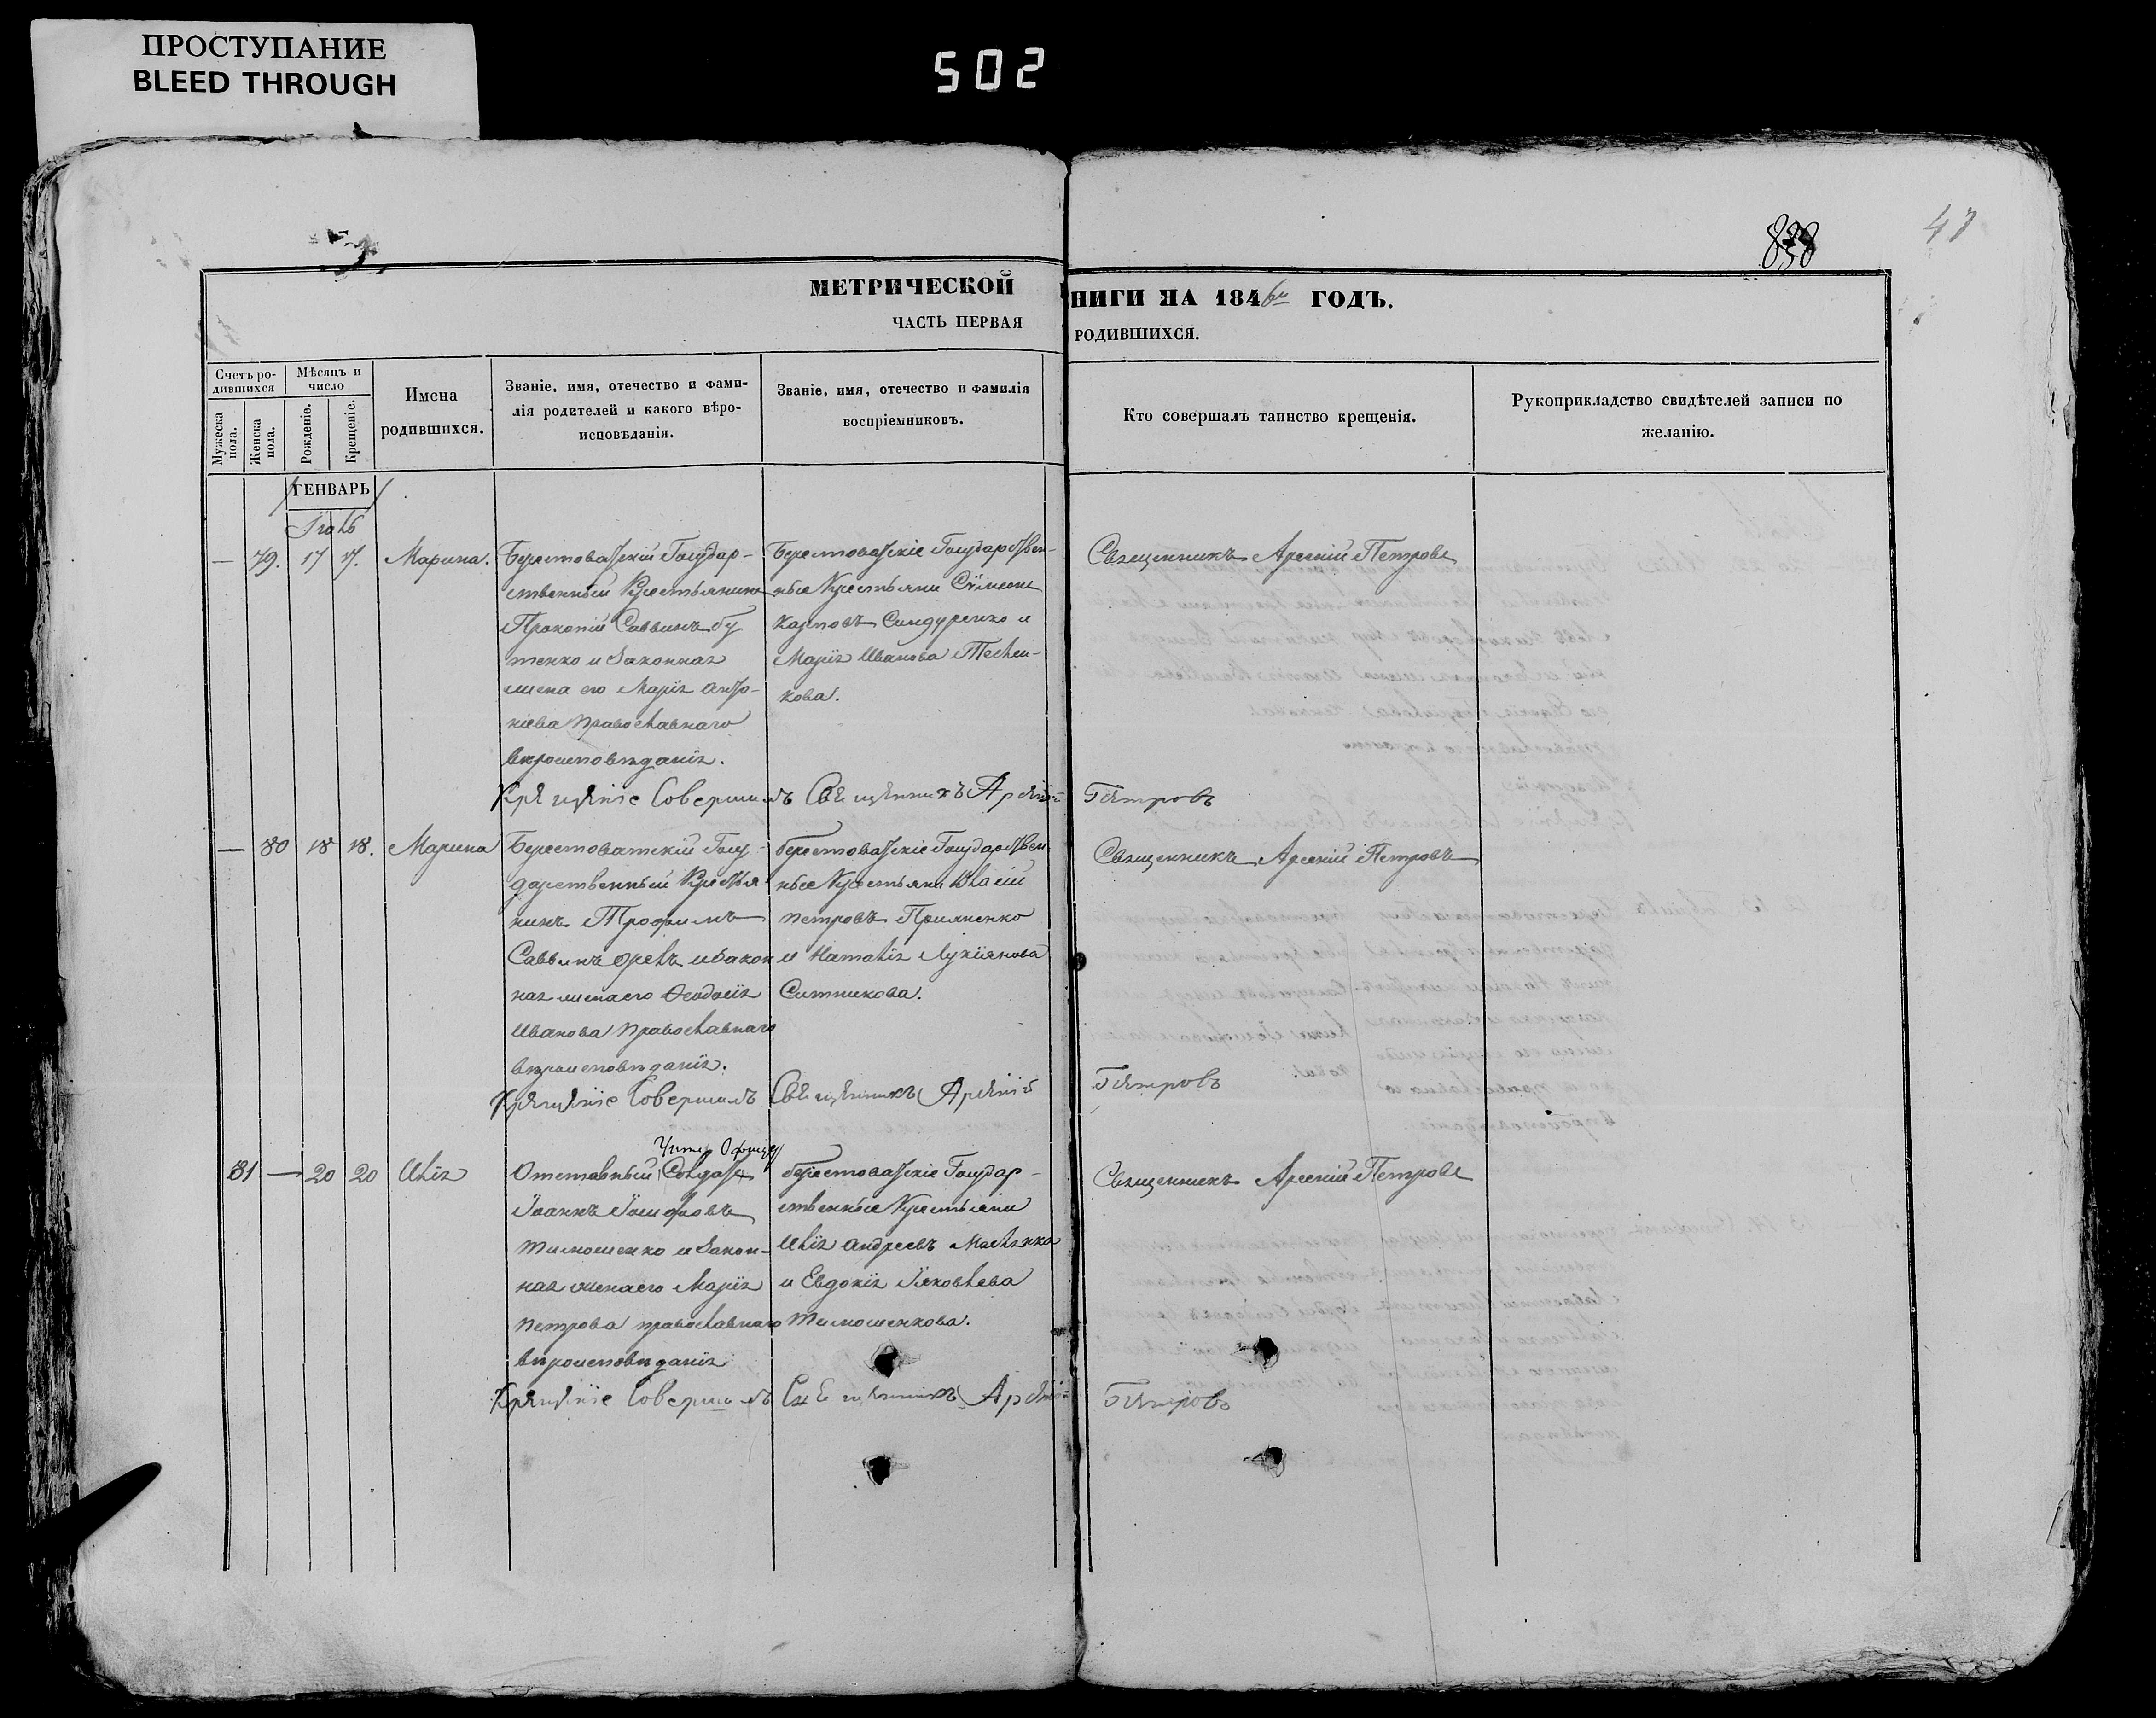 ПРОСТУПАНИЕ
BLEED THROUGH
502
47
838
МЕТРИЧЕСКОЙ КНИГИ НА 1846й ГОДЪ.
ЧАСТЬ ПЕРВАЯ РОДИВШИХСЯ.
Счетъ ро-
дившихся
Мужеска пола.
Женска пола.
Мѣсяцъ и
число
Рожденіе.
Крещеніе.
Имена
родившихся.
Званіе, имя, отечество и фами-
лія родителей и какого вѣро-
исповѣданія.
Званіе, имя, отечество и фамилія
воспріемниковъ.
Кто совершалъ таинство крещенія.
Рукоприкладство свидѣтелей записи по
желанію.
ГЕНВАРЬ
— 79. 17 17. Марина.
Берестоватскій Государ-
ственный Крестьянинъ
Прокопій Саввинъ Бу
тенко и Законная
жена его Марія
православнаго
вѣроисповѣданія.
Берестоватскіе Государствен-
ные Крестьяни Сѵмеонъ
Карповъ Синдуренко и
Марія Иванова
кова.
Священникъ Арсеній Петровъ
Крещеніе Совершилъ Священникъ Арсеній Петровъ
— 80 18 18. Марина
Берестоватскій Госу-
дарственный Крестья-
нинъ Трофимъ
Саввинъ Орелъ и Закон
ная жена его Феодосія
Иванова православнаго
вѣроисповѣданія.
Берестоватскіе Государствен
ные Крестьяни
Петровъ
и Наталія Лукіянова
Ситникова.
Священникъ Арсеній Петровъ
Крещеніе Совершилъ Священникъ Арсеній Петровъ
81 — 20 20 Илія
Унтер Офицер
Отставный Солдатъ
Іоаннъ Іосифовъ
Тимошенко и Закон-
ная жена его Марія
Петрова православнаго
вѣроисповѣданія
Берестоватскіе Государ-
ственные Крестьяни
Илія Андреевъ
и Евдокія Іяковлева
Тимошенкова.
Священникъ Арсеній Петровъ
Крещеніе Совершилъ Священникъ Арсеній Петровъ